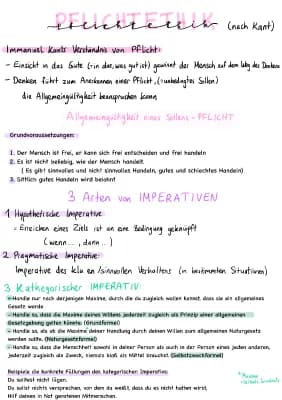 PFLICHTETHIK (nach Kant)
Immanuel Kants Verständnis von Pflicht:
- Einsicht in das Gute (→ in der, was gut ist) gewinnt der Mensch auf dem Weg des Denkens
- Denken führt zum Anerkennen einer Pflicht, (unbedingtes Sollen)
die Allgemeingültigkeit beanspruchen kann
Allgemeingültigkeit eines Sollens - PFLICHT
Grundvoraussetzungen:
1. Der Mensch ist frei, er kann sich frei entscheiden und frei handeln
2. Es ist nicht beliebig, wie der Mensch handelt
( Es gibt sinnvolles und nicht sinnvolles Handeln, gutes und schlechtes Handeln)
3. Sittlich gutes Handeln wird belohnt
3 Arten von IMPERATIVEN
1. Hypothetische Imperative
= Erreichen eines Ziels ist an eine Bedingung geknüpft
(wenn..., dann...)
2. Pragmatische Imperative:
Imperative des klugen/sinnvollen Verhaltens (in bestimmten Situationen)
3. Kathegorischer IMPERATIV:
Handle nur nach derjenigen Maxime, durch die du zugleich wollen kannst, dass sie ein allgemeines
Gesetz werde
Handle so, dass die Maxime deines Willens jederzeit zugleich als Prinzip einer allgemeinen
Gesetzgebung gelten könnte (Grundformel)
Handle so, als ob die Maxime deiner Handlung durch deinen Willen zum allgemeinen Naturgesetz
werden sollte. (Naturgesetzformel)
Handle so, dass du die Menschheit sowohl in deiner Person als auch in der Person eines jeden anderen,
jederzeit zugleich als Zweck, niemals bloß als Mittel brauchst. (Selbstzweckformel)
* Maxime
Beispiele die konkrete Füllungen des kategorischen Imperativs:
Du sollest nicht lügen.
Du sollst nichts versprechen, von dem du weißt, dass du es nicht halten wirst.
Hilf deinen in Not geratenen Mitmenschen.